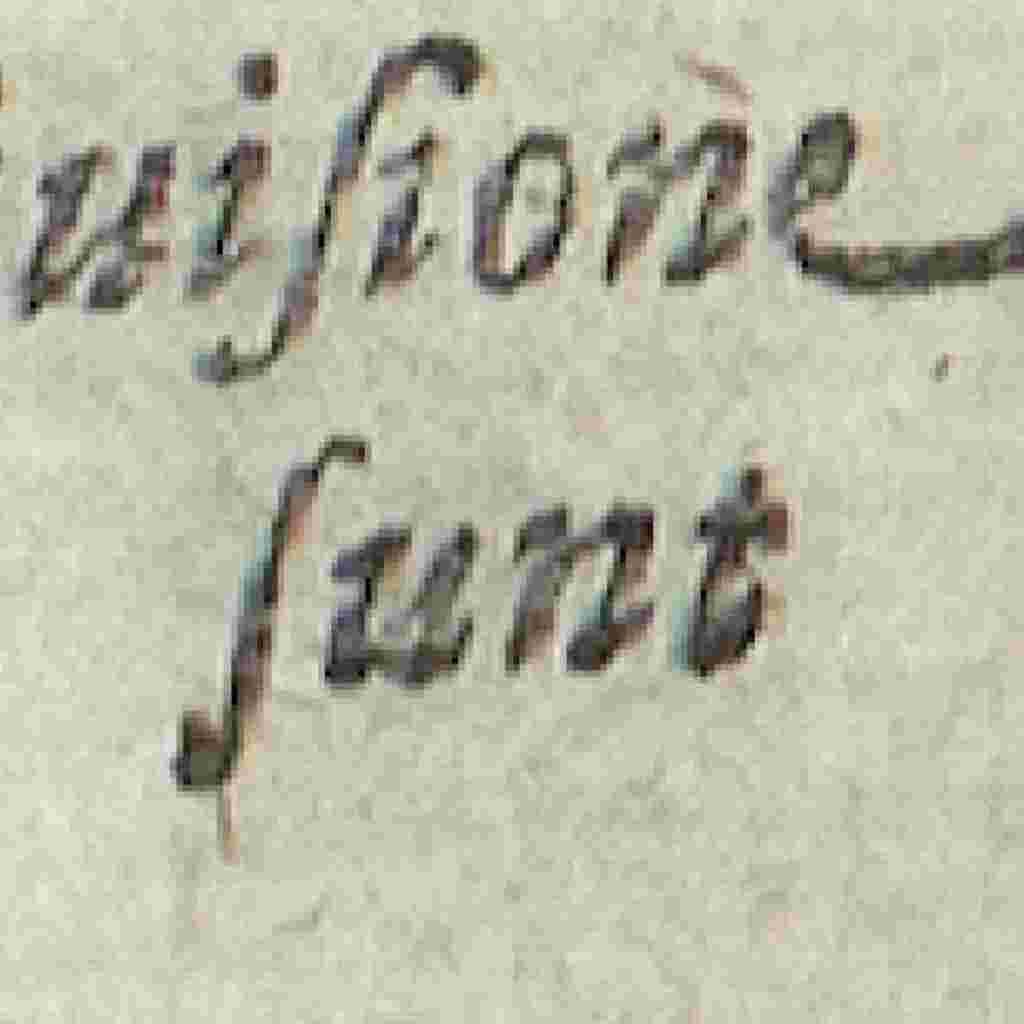 uiſione
ſunt